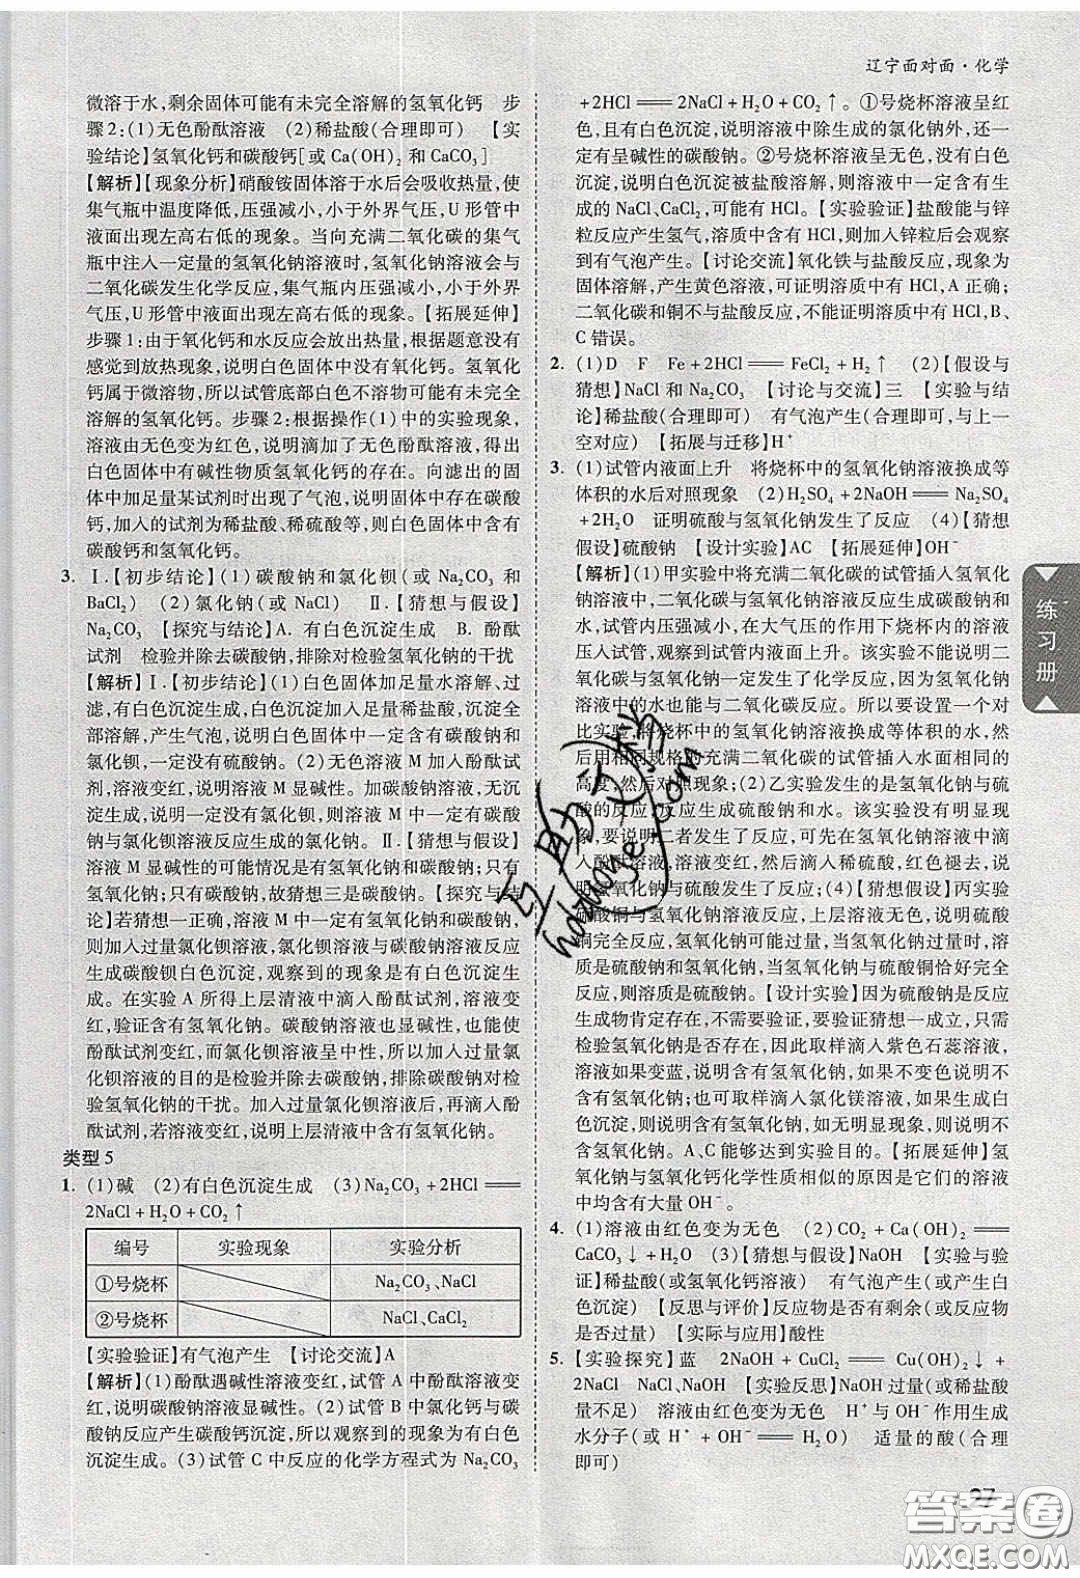 辽宁面对面·化学
微溶于水,剩余固体可能有未完全溶解的氢氧化钙　步
骤2:(1)无色酚酞溶液　(2)稀盐酸(合理即可)　【实
验结论】氢氧化钙和碳酸钙[或Ca(OH)₂和CaCO₃]
【解析】【现象分析】硝酸铵固体溶于水后会吸收热量,使
集气瓶中温度降低,压强减小,小于外界气压,U形管中
液面出现左高右低的现象。当向充满二氧化碳的集气
瓶中注入一定量的氢氧化钠溶液时,氢氧化钠溶液会与
二氧化碳发生化学反应,集气瓶内压强减小,小于外界
气压,U形管中液面出现左高右低的现象。【拓展延伸】
步骤1:由于氧化钙和水反应会放出热量,根据题意没有
感觉到放热现象,说明白色固体中没有氧化钙。氢氧化
钙属于微溶物,所以试管底部白色不溶物可能有未完全
溶解的氢氧化钙。步骤2:根据操作(1)中的实验现象,
溶液由无色变为红色,说明滴加了无色酚酞溶液,得出
白色固体中有碱性物质氢氧化钙的存在。向滤出的固
体中加足量某试剂时出现了气泡,说明固体中存在碳酸
钙,加入的试剂为稀盐酸、稀硫酸等,则原固体中含有
碳酸钙和氢氧化钙。
3. Ⅰ.【初步结论】(1)碳酸钠和氯化钡(或Na₂CO₃和
BaCl₂)　(2)氯化钠(或NaCl)　Ⅱ.【猜想与假设】
Na₂CO₃【探究与结论】A. 有白色沉淀生成　B. 酚酞
试剂　检验并除去碳酸钠,排除对检验氢氧化钠的干扰
【解析】Ⅰ.【初步结论】(1)白色固体加足量水溶解、过
滤,有白色沉淀生成,白色沉淀加足量稀盐酸,沉淀全
部溶解,产生气泡,说明白色固体中一定有碳酸钠和氯
化钡,一定没有硫酸钠。(2)无色溶液M加酚酞试
剂,溶液变红,说明溶液M显碱性。加碳酸钠溶液,无沉
淀生成,说明不含氯化钡,则溶液M中一定含有碳酸
钠与氯化钡溶液反应生成的氯化钠。Ⅱ.【猜想与假设】
溶液M显碱性的可能情况是有氢氧化钠和碳酸钠;只有
氢氧化钠;只有碳酸钠,故猜想三是碳酸钠。【探究与结
论】若猜想一正确,溶液M中一定有氢氧化钠和碳酸钠,
则加入过量氯化钡溶液,氯化钡溶液与碳酸钠溶液反应
生成碳酸钡白色沉淀,观察到的现象是有白色沉淀生成。
在实验A所得上层清液中滴入酚酞试剂,溶液变
红,验证含有氢氧化钠。碳酸钠溶液也显碱性,也能使
酚酞试剂变红,而氯化钡溶液呈中性,所以加入过量氯
化钡溶液的目的是检验并除去碳酸钠,排除碳酸钠对检
验氢氧化钠的干扰。加入过量氯化钡溶液后,再滴入酚
酞试剂,若溶液变红,说明上层清液中含有氢氧化钠。
类型5
1. (1)碱　(2)有白色沉淀生成　(3)Na₂CO₃+2HCl══
2NaCl+H₂O+CO₂↑
编号　实验现象　实验分析
①号烧杯　Na₂CO₃、NaCl
②号烧杯　NaCl、CaCl₂
【实验验证】有气泡产生　【讨论交流】A
【解析】(1)酚酞遇碱性溶液变红,试管A中酚酞溶液变
红,说明碳酸钠溶液显碱性。(2)试管B中氯化钙与碳
酸钠反应产生碳酸钙沉淀,所以观察到的现象是有白色
沉淀生成。(3)试管C中反应的化学方程式为Na₂CO₃
+2HCl══2NaCl+H₂O+CO₂↑。①号烧杯溶液呈红
色,且有白色沉淀,说明溶液中除生成的氯化钠外,还一
定有呈碱性的碳酸钠。②号烧杯溶液呈无色,没有白色
沉淀,说明碳酸钙沉淀被盐酸溶解,则溶液中一定含有生
成的NaCl、CaCl₂,可能有HCl。【实验验证】盐酸能与锌
粒反应产生氢气,溶质中含有HCl,则加入锌粒后会观察
到有气泡产生。【讨论交流】氧化铁与盐酸反应,现象为
固体溶解,产生黄色溶液,可证明溶液中有HCl,A正确;
二氧化碳和铜不与盐酸反应,不能证明溶液中有HCl,B、
C错误。
2. (1)D　F　Fe+2HCl══FeCl₂+H₂↑　(2)【假设与
猜想】NaCl和Na₂CO₃　【讨论与交流】三　【实验与结
论】稀盐酸(合理即可)　有气泡产生(合理即可,与上一
空对应)　【拓展与迁移】H⁺
3. (1)试管内液面上升　将烧杯中的氢氧化钠溶液换成等
体积的水后对照现象　(2)H₂SO₄+2NaOH══Na₂SO₄
+2H₂O　证明硫酸与氢氧化钠发生了反应　(4)【猜想
假设】硫酸钠　【设计实验】AC　【拓展延伸】OH⁻
【解析】(1)甲实验中将充满二氧化碳的试管插入氢氧化
钠溶液中,二氧化碳与氢氧化钠溶液反应生成碳酸钠和
水,试管内压强减小,在大气压的作用下烧杯内的溶液
压入试管,观察到试管内液面上升。该实验不能说明二
氧化碳与氢氧化钠一定发生了化学反应,因为氢氧化钠
溶液中的水也能与二氧化碳反应。所以要设置一个对
比实验,将烧杯中的氢氧化钠溶液换成等体积的水,然
后用相同规格的充满二氧化碳的试管插入水面相同的
高度,然后对照现象;(2)乙实验发生的是氢氧化钠与硫
酸的反应,反应生成硫酸钠和水。该实验没有明显现
象,要说明二者发生了反应,可先在氢氧化钠溶液中滴
入酚酞溶液,溶液变红,然后滴入稀硫酸,红色褪去,说
明氢氧化钠与硫酸发生了反应;(4)【猜想假设】丙实验
硫酸铜与氢氧化钠溶液反应,上层溶液无色,说明硫酸
铜完全反应,氢氧化钠可能过量,当氢氧化钠过量时,溶
质是硫酸钠和氢氧化钠。当氢氧化钠与硫酸铜恰好完全
反应,则溶质是硫酸钠。【设计实验】因为硫酸钠是反应
生成物肯定存在,不需要验证,要验证猜想一成立,只需
检验氢氧化钠是否存在,因此取样滴入紫色石蕊溶液,
溶液如果变蓝,则说明含有氢氧化钠,如果没变蓝则没有
氢氧化钠;也可以取样滴入氯化镁溶液,如果产生白色
沉淀,则说明含有氢氧化钠,如果没有白色沉淀则说明不
含氢氧化钠。A、C能够达到实验目的。【拓展延伸】氢
氧化钠与氢氧化钙化学性质相似的原因是它们的溶液
中均含有大量OH⁻。
4. (1)溶液由红色变为无色　(2)CO₂+Ca(OH)₂══
CaCO₃↓+H₂O　(3)【猜想与假设】NaOH　【实验与验
证】稀盐酸(或氢氧化钙溶液)　有气泡产生(或产生白
色沉淀)　【反思与评价】反应物是否有剩余(或反应物
是否过量)　【实际与应用】酸性
5. 【实验探究】蓝　2NaOH+CuCl₂══Cu(OH)₂↓+
2NaCl　NaCl、NaOH　【实验反思】NaOH过量(或稀盐酸
量不足)　溶液由红色变为无色　H⁺与OH⁻作用生成
水分子(或H⁺+OH⁻══H₂O)　适量的酸(合理
即可)
练习册
27
互助文档
huzhuge.com
答案圈
MXQE.COM